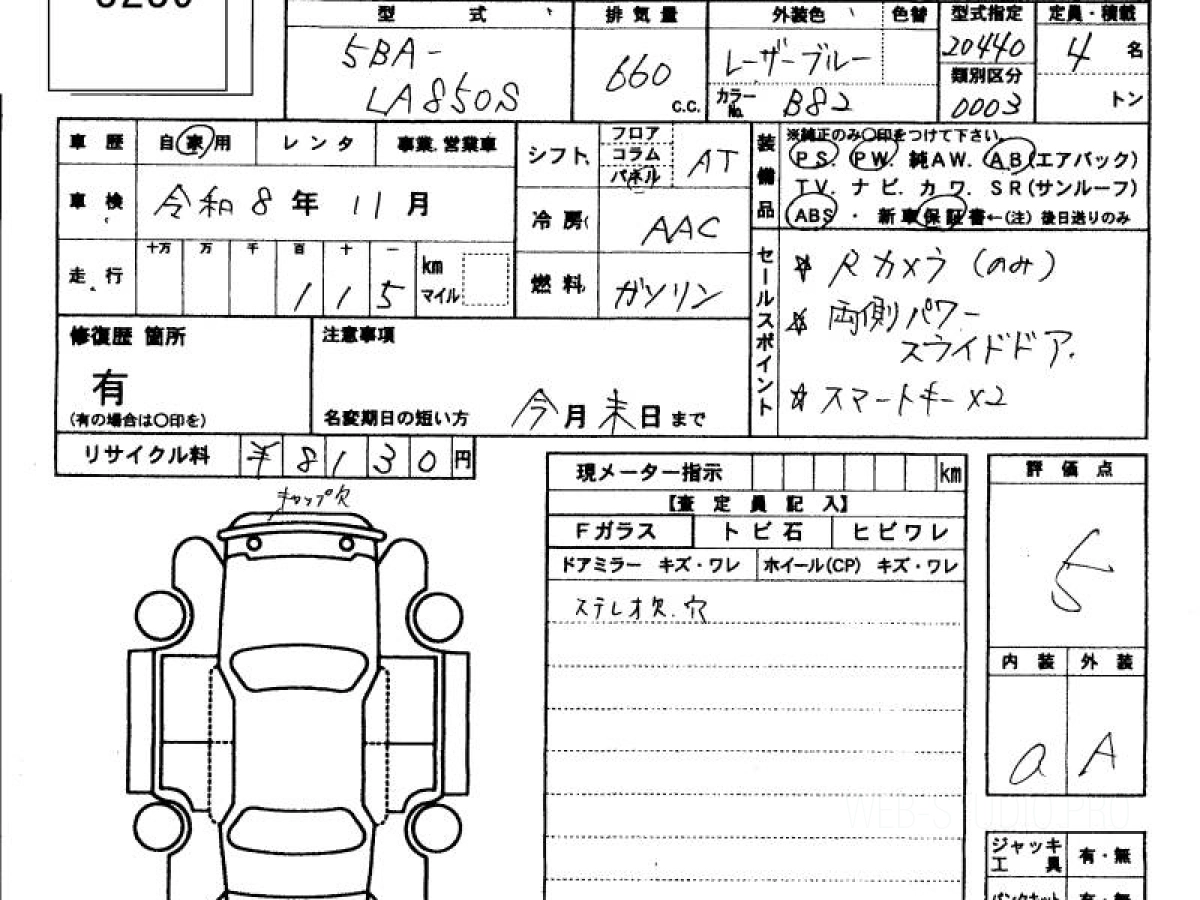 型 式
5BA-
LA850S
排気量
660
C.C.
外装色
色替
レーザーブルー
カラーNo. B82
型式指定
20440
類別区分
0003
定員・積載
4 名
トン
車歴 自家用 レンタ 事業.営業車
車検 令和8年11月
走行 十万 万 千 百 十 一
115
km
マイル
シフト フロア コラム パネル AT
冷房 AAC
燃料 ガソリン
装備品
※純正のみ〇印をつけて下さい。
PS. PW. 純AW. AB(エアバック)
TV. ナビ. カワ. SR(サンルーフ)
ABS ・ 新車保証書←(注) 後日送りのみ
セールスポイント
☆ Rカメラ (のみ)
☆ 両側パワー
スライドドア.
☆ スマートキーx2
修復歴 箇所
有
(有の場合は〇印を)
注意事項
名変期日の短い方 今月末日まで
リサイクル料 ¥8130円
キャップ欠
現メーター指示 km
【査定員記入】
Fガラス トビ石 ヒビワレ
ドアミラー キズ・ワレ ホイール(CP) キズ・ワレ
ステレオ欠.穴
評価点
5
内装 外装
a A
WEB-STUDIO PRO
ジャッキ
工具 有・無
パンクキット 有・無